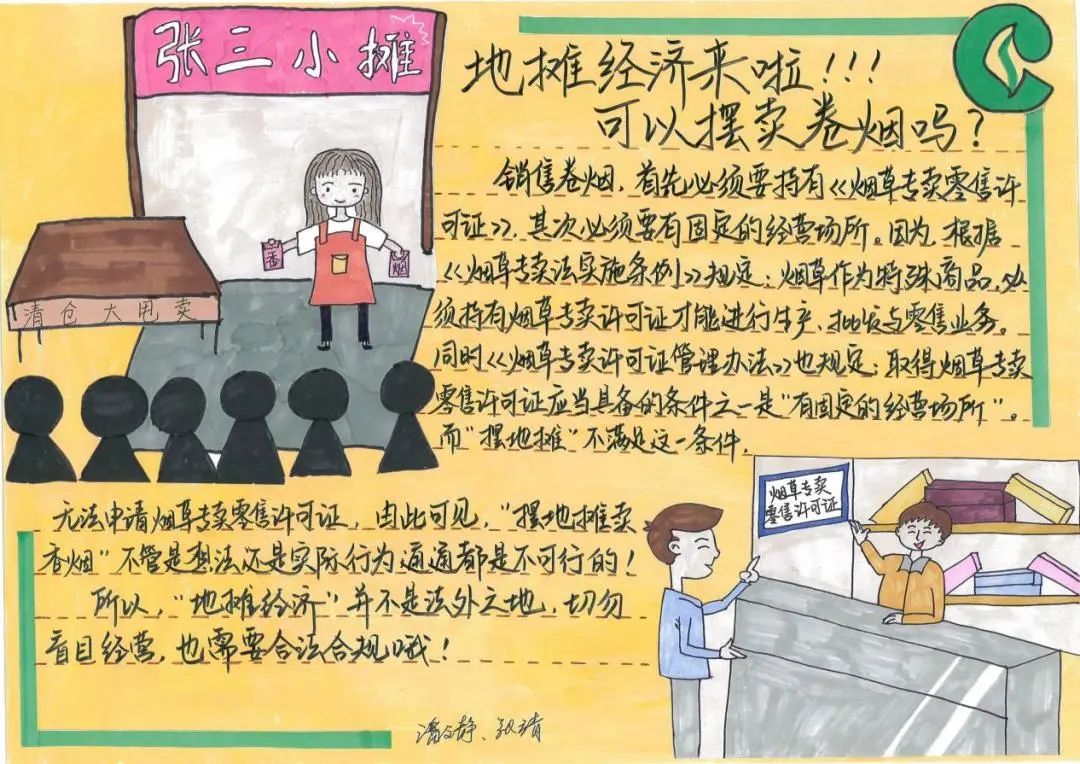 张三小摊
地摊经济来啦!!!
可以摆卖卷烟吗?
香
烟
清仓大甩卖
销售卷烟,首先必须要持有《烟草专卖零售许
可证》,其次必须要有固定的经营场所。因为,根据
《烟草专卖法实施条例》规定:烟草作为特殊商品,必
须持有烟草专卖许可证才能进行生产、批发与零售业务。
同时《烟草专卖许可证管理办法》也规定:取得烟草专卖
零售许可证应当具备的条件之一是“有固定的经营场所”。
而“摆地摊”不满足这一条件,
无法申请烟草专卖零售许可证,由此可见,“摆地摊卖
香烟”不管是想法还是实际行为通通都是不可行的!
所以,“地摊经济”并不是法外之地,切勿
盲目经营,也需要合法合规哦!
烟草专卖
零售许可证
潘文静、张靖